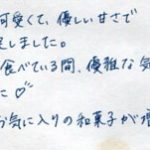 可愛くて、優しい甘さで
足しました。
食べている間、優雅な気
た♡
お気に入りの和菓子が増